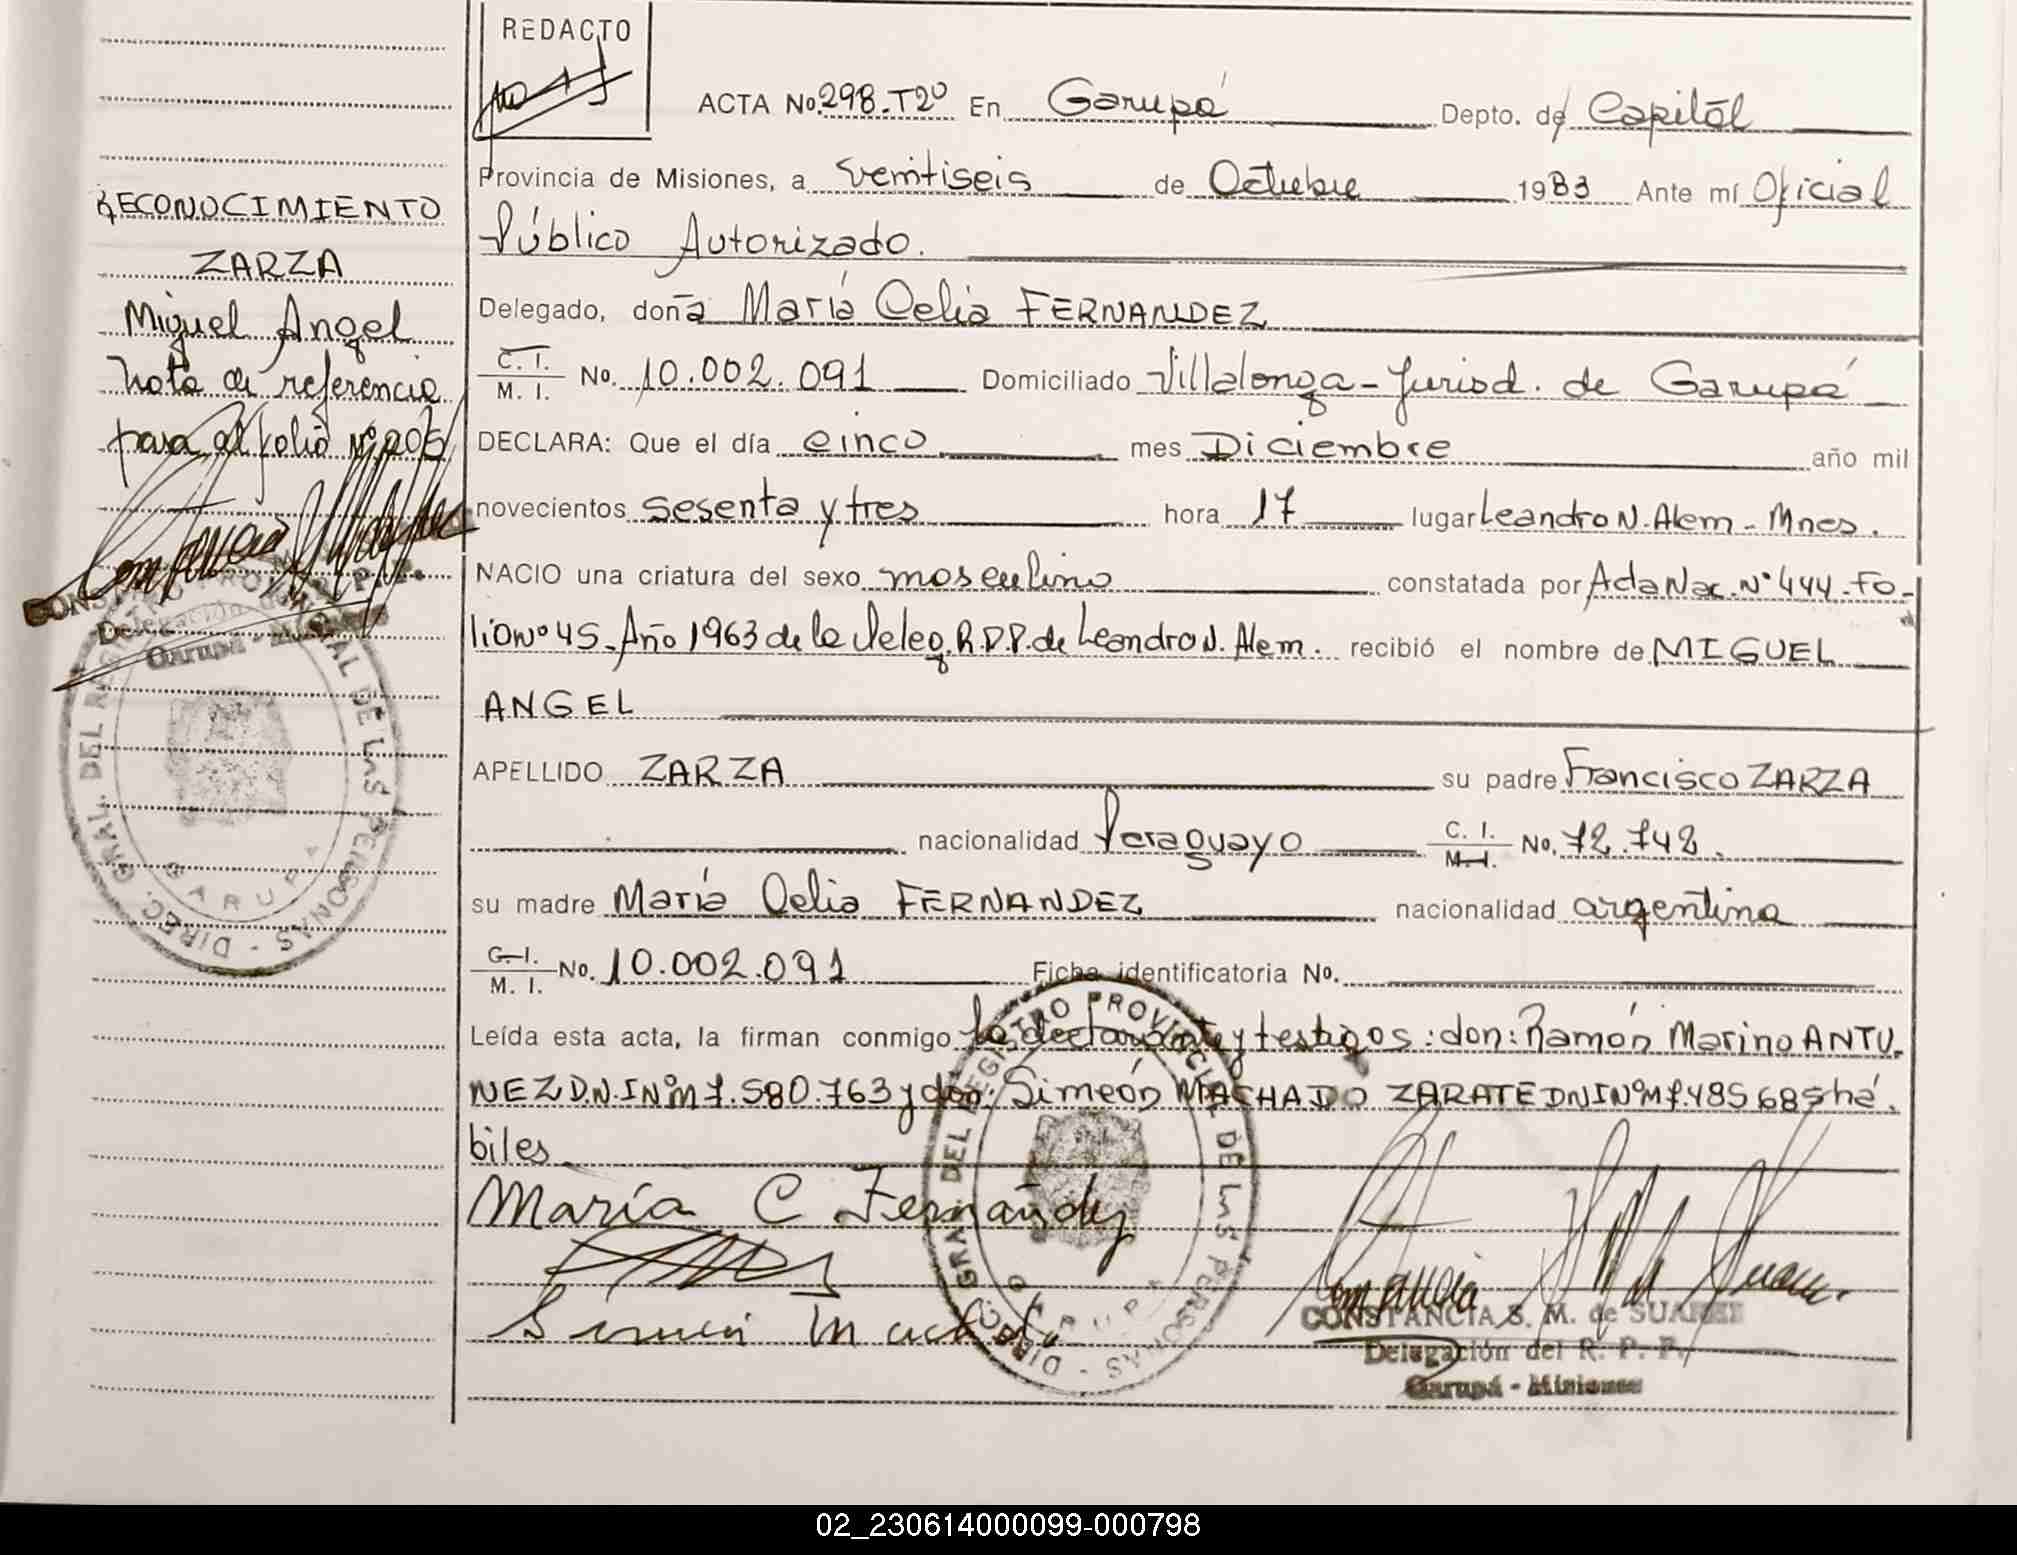 REDACTO
ACTA No. 298.T2º En Garupá Depto. de Capital
RECONOCIMIENTO
ZARZA
Miguel Angel
Nota de referencia
para al folio Nº 205
Provincia de Misiones, a veintiseis de Octubre 1983 Ante mí Oficial
Público Autorizado.
Delegado, doña María Celia FERNANDEZ
C. I.
M. I. No. 10.002.091 Domiciliado Villalonga - Jurisd. de Garupá
DECLARA: Que el día cinco mes Diciembre año mil
novecientos sesenta y tres hora 17 lugar Leandro N. Alem - Mnes.
NACIO una criatura del sexo masculino constatada por Acta Nac. Nº 444 - Fo-
lio nº 45 - Año 1963 de la Deleg. R.P.P. de Leandro N. Alem. recibió el nombre de MIGUEL
ANGEL
APELLIDO ZARZA su padre Francisco ZARZA
nacionalidad Paraguayo C. I.
M. I. No. 72.742.
su madre María Celia FERNANDEZ nacionalidad argentina
C. I.
M. I. No. 10.002.091 Ficha identificatoria No.
Leída esta acta, la firman conmigo la declarante y testigos: don: Ramón Marino ANTU-
NEZ D.N.I Nº M 7.580.763 y don: Simeón MACHADO ZARATE DNI Nº M 7.485 685 há-
biles
María C Fernández
Simeón Machado
CONSTANCIA S. M. de SUAREZ
Delegación del R. P. P.
Garupá - Misiones
Delegación del R. P. P.
Garupá - Misiones
DIREC. GRAL. DEL REGISTRO PROVINCIAL DE LAS PERSONAS
GARUPA
DIREC. GRAL. DEL REGISTRO PROVINCIAL DE LAS PERSONAS
GARUPA
02_230614000099-000798